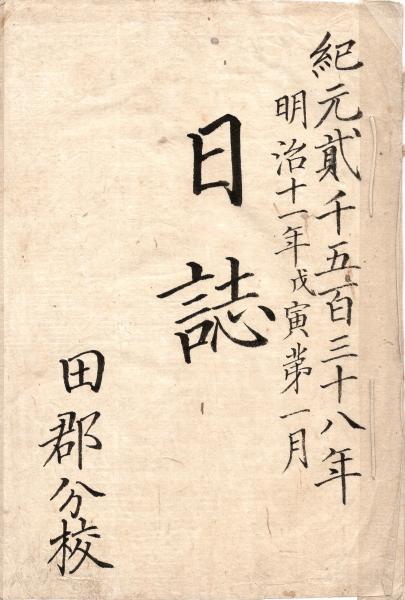 紀元貳千五百三十八年
明治十一年戊寅第一月
日誌
田郡分校